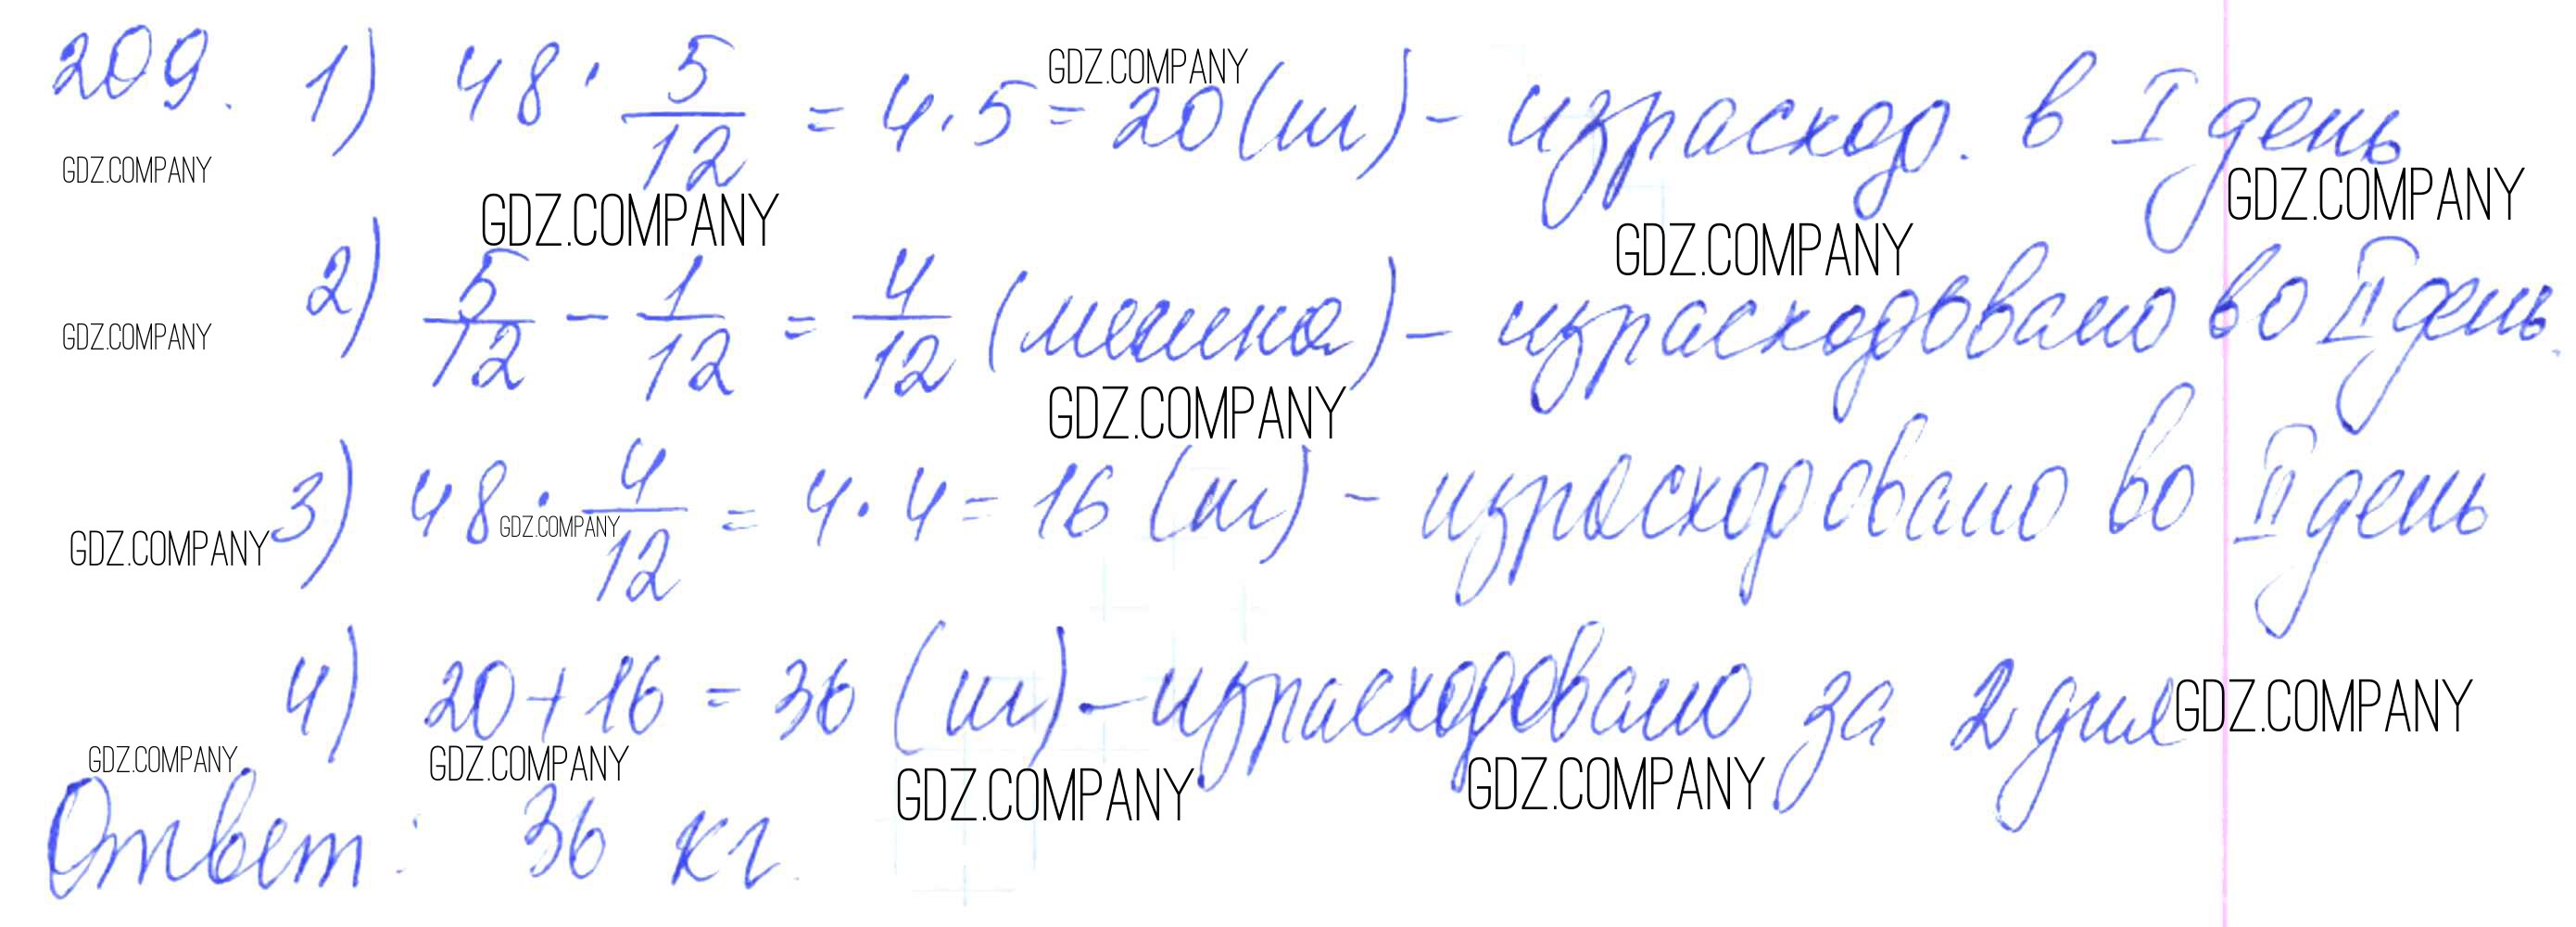 209. 1) 48 · 5/12 = 4 · 5 = 20 (ш) - израсход. в I день
2) 5/12 - 1/12 = 4/12 (мешка) - израсходовано во II день.
3) 48 · 4/12 = 4 · 4 = 16 (ш) - израсходовано во II день
4) 20 + 16 = 36 (ш) - израсходовано за 2 дня
Ответ: 36 кг.
GDZ.COMPANY
GDZ.COMPANY
GDZ.COMPANY
GDZ.COMPANY
GDZ.COMPANY
GDZ.COMPANY
GDZ.COMPANY
GDZ.COMPANY
GDZ.COMPANY
GDZ.COMPANY
GDZ.COMPANY
GDZ.COMPANY
GDZ.COMPANY
GDZ.COMPANY